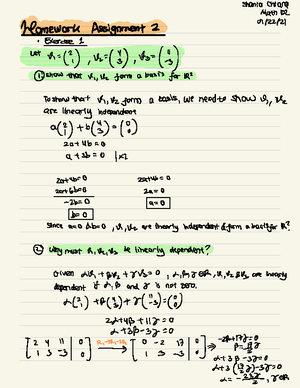 Shania Chiang
Math 182
01/22/21
Homework Assignment 2
• Exercise 1
Let v₁ = (2 1), v₂ = (4 3), v₃ = (11 -3)
① Show that v₁, v₂ form a basis for R²
To show that v₁, v₂ form a basis, we need to show v₁, v₂
are linearly independent
a(2 1) + b(4 3) = (0 0)
2a + 4b = 0
a + 3b = 0 | x2
2a+4b=0 2a+4b=0
2a+6b=0 2a=0
-2b=0 a=0
b=0
Since a=0 & b=0, v₁, v₂ are linearly independent & form a basis for R².
② Why must v₁, v₂, v₃ be linearly dependent?
Given αv₁ + βv₂ + γv₃ = 0, α, β, γ ∈ R, v₁, v₂ & v₃ are linearly
dependent if α, β and γ is not zero.
α(2 1) + β(4 3) + γ(11 -3) = (0 0)
2α+4β+11γ=0
α+3β-3γ=0
[2 4 11 | 0
1 3 -3 | 0] → [0 -2 17 | 0
1 3 -3 | 0] ⇒ -2β+17γ=0
β = 17/2 γ
α+3β-3γ=0
α+3(17/2)γ-3γ=0